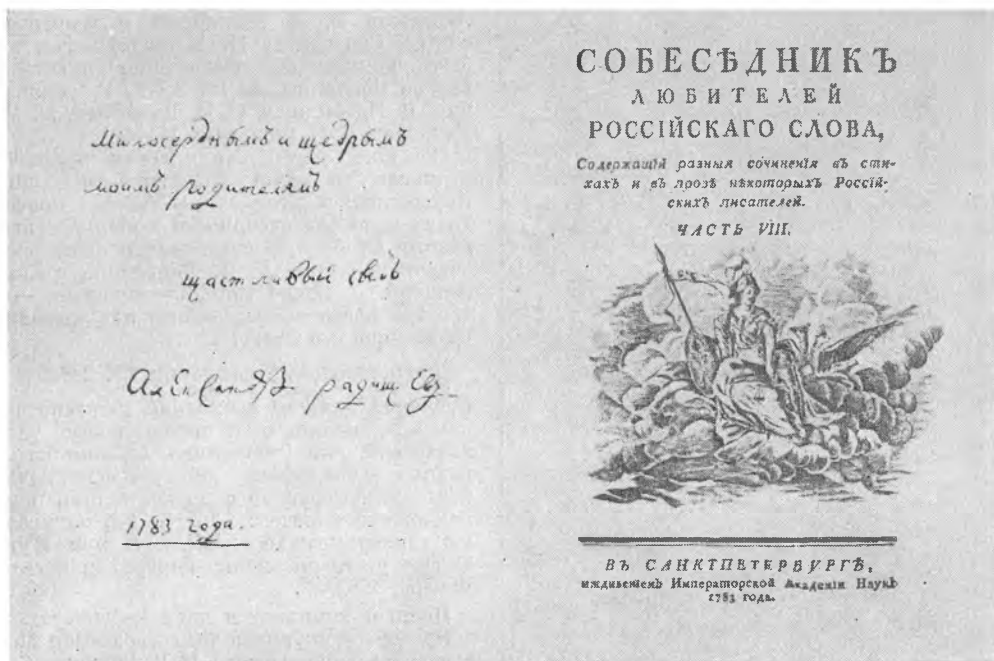 Милосерднымъ и щедрымъ
моимъ родителямъ
щастливый сынъ
Александръ радищевъ
1783 года
СОБЕСѢДНИКЪ
ЛЮБИТЕЛЕЙ
РОССІЙСКАГО СЛОВА,
Содержащій разныя сочиненія въ сти-
хахъ и въ прозѣ нѣкоторыхъ Россій-
скихъ писателей.
ЧАСТЬ VIII.
ВЪ САНКТПЕТЕРБУРГѢ,
иждивеніемъ Императорской Академіи Наукъ
1783 года.